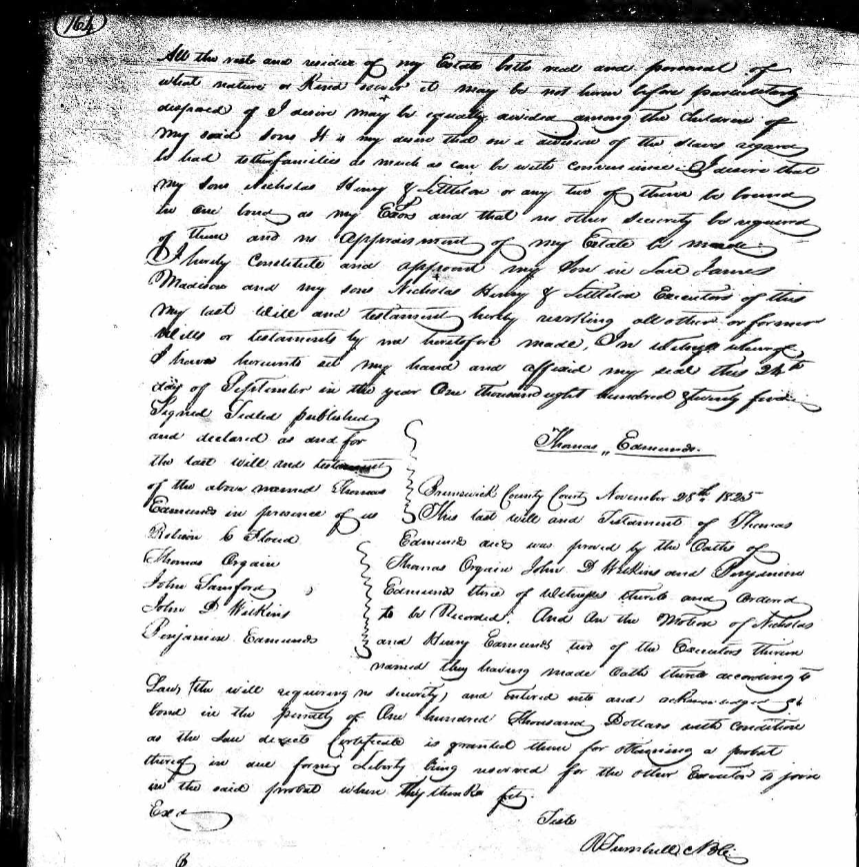 164
All the rests and residue of my Estate both real and personal of
what nature or Kind soever it may be not herein before particularly
disposed of I desire may be equally divided among the Children of
my said sons. It is my desire that on a division of the slaves regard
be had to their families as much as can be with convenience. I desire that
my sons Nicholas Henry & Littleton or any two of them be bound
in one bond as my Exors and that no other security be required
of them and no Appraisment of my Estate be made.
I hereby Constitute and appoint my Son in Law James
Madison and my sons Nicholas Henry & Littleton Executors of this
my last Will and testament hereby revoking all other or former
Wills or testaments by me heretofore made. In witness whereof
I have hereunto set my hand and affixed my seal this 24th
day of September in the year One thousand eight hundred & twenty five
Signed Sealed published
and declared as and for
the last will and testament
of the above named Thomas
Edmunds in presence of us
Thomas Orgain
John Sanford
John D Wilkins
Benjamin Edmunds
Thomas Edmunds.
Brunswick County Court November 28th. 1825
This last will and Testament of Thomas
Edmunds was proved by the Oaths of
Thomas Orgain John D Wilkins and Benjamin
Edmunds three of Witnesses thereto and Ordered
to be Recorded. And on the Motion of Nicholas
and Henry Edmunds two of the Executors therein
named they having made Oath thereto according to
Law, (the will requiring no security) and entered into and acknowledged
bond in the penalty of One hundred Thousand Dollars with Condition
as the Law directs Certificate is granted them for obtaining a probat
thereof in due form, Liberty being reserved for the other Executor to join
in the said probat when they think fit.
Exd
Teste
R Turnbull